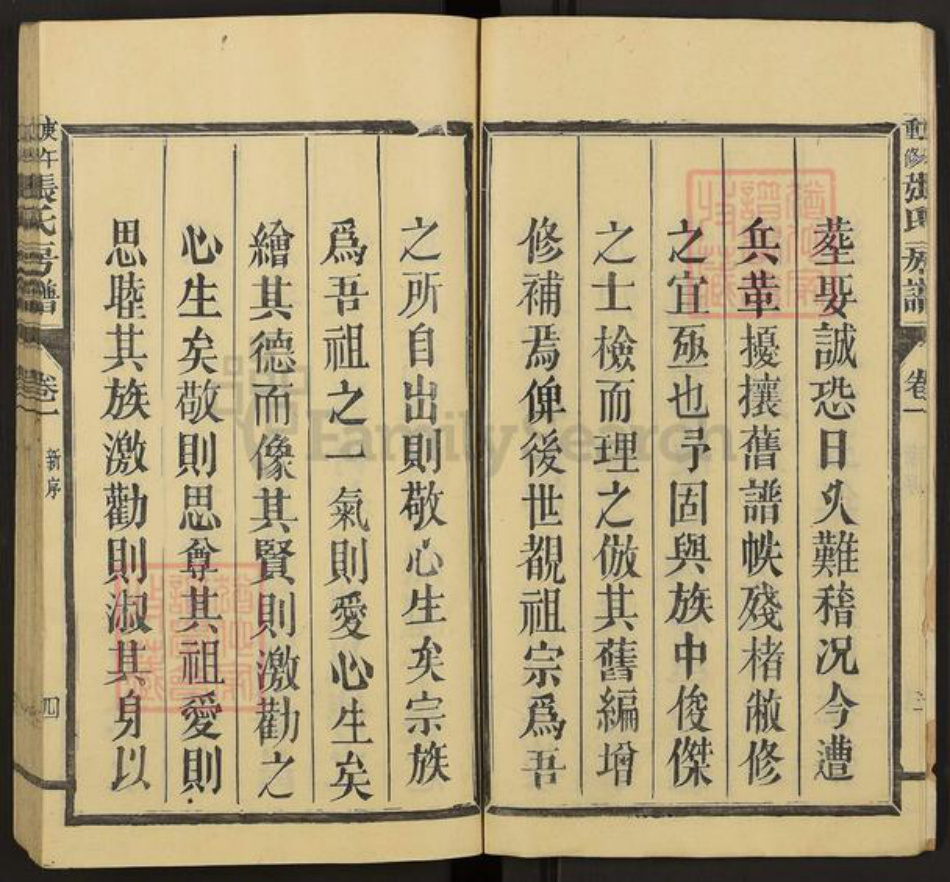 重修張氏房譜
卷一
塟娶誠恐日久難稽况今遭
兵革擾攘舊譜帙殘楮敝修
之宜亟也予固與族中俊傑
之士檢而理之倣其舊編增
修補焉俾後世覩祖宗爲吾
之所自出則敬心生矣宗族
爲吾祖之一氣則愛心生矣
繪其德而像其賢則激勸之
心生矣敬則思尊其祖愛則
思睦其族激勸則淑其身以
庚午張氏房譜
卷一
新序
四
FamilySearch